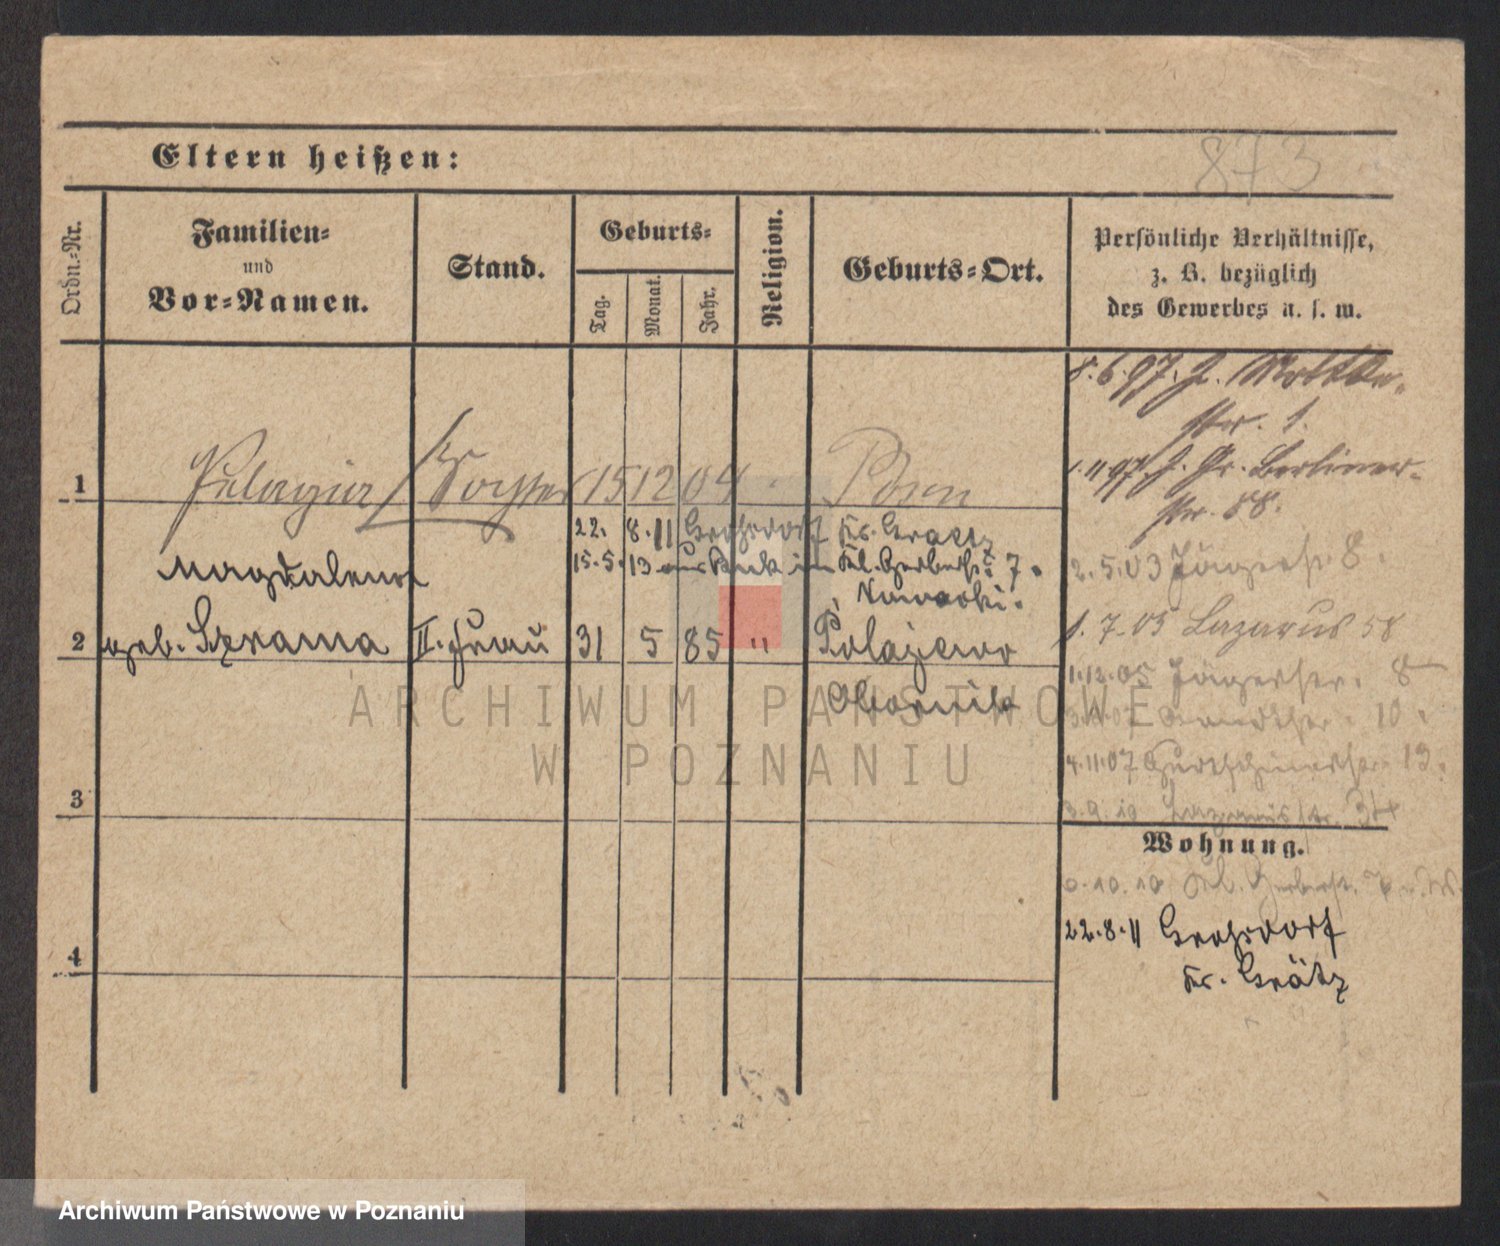 873
Eltern heißen:
Ordn.-Nr.
Familien-
und
Vor-Namen.
Stand.
Geburts-
Tag.
Monat.
Jahr.
Religion.
Geburts-Ort.
Persönliche Verhältnisse,
z. B. bezüglich
des Gewerbes u. s. w.
8.6.97. J. Moltke-
str. 1.
1 Pelagia Tochter 15 12 04 Posen
1.11.97 J. Gr. Berliner-
str. 88.
22. 8.11 Grossdorf Kr. Graetz
15.5.13 aus Buk in Kl. Gerberstr. 7.
Nowacki.
2.5.03 Jägerstr. 8.
Magdalena
2 geb. Szrama II. Frau 31 5 85 " Polajewo
Obornik
1.7.05 Lazarus 58
1.12.05 Jägerstr. 8
10.
4.11.07 13.
3
3.9.10 Lazarusstr. 34
Wohnung.
.10.10 Kl. Gerberstr. 7
22.8.11 Grossdorf
Kr. Grätz
4
ARCHIWUM PAŃSTWOWE
W POZNANIU
Archiwum Państwowe w Poznaniu